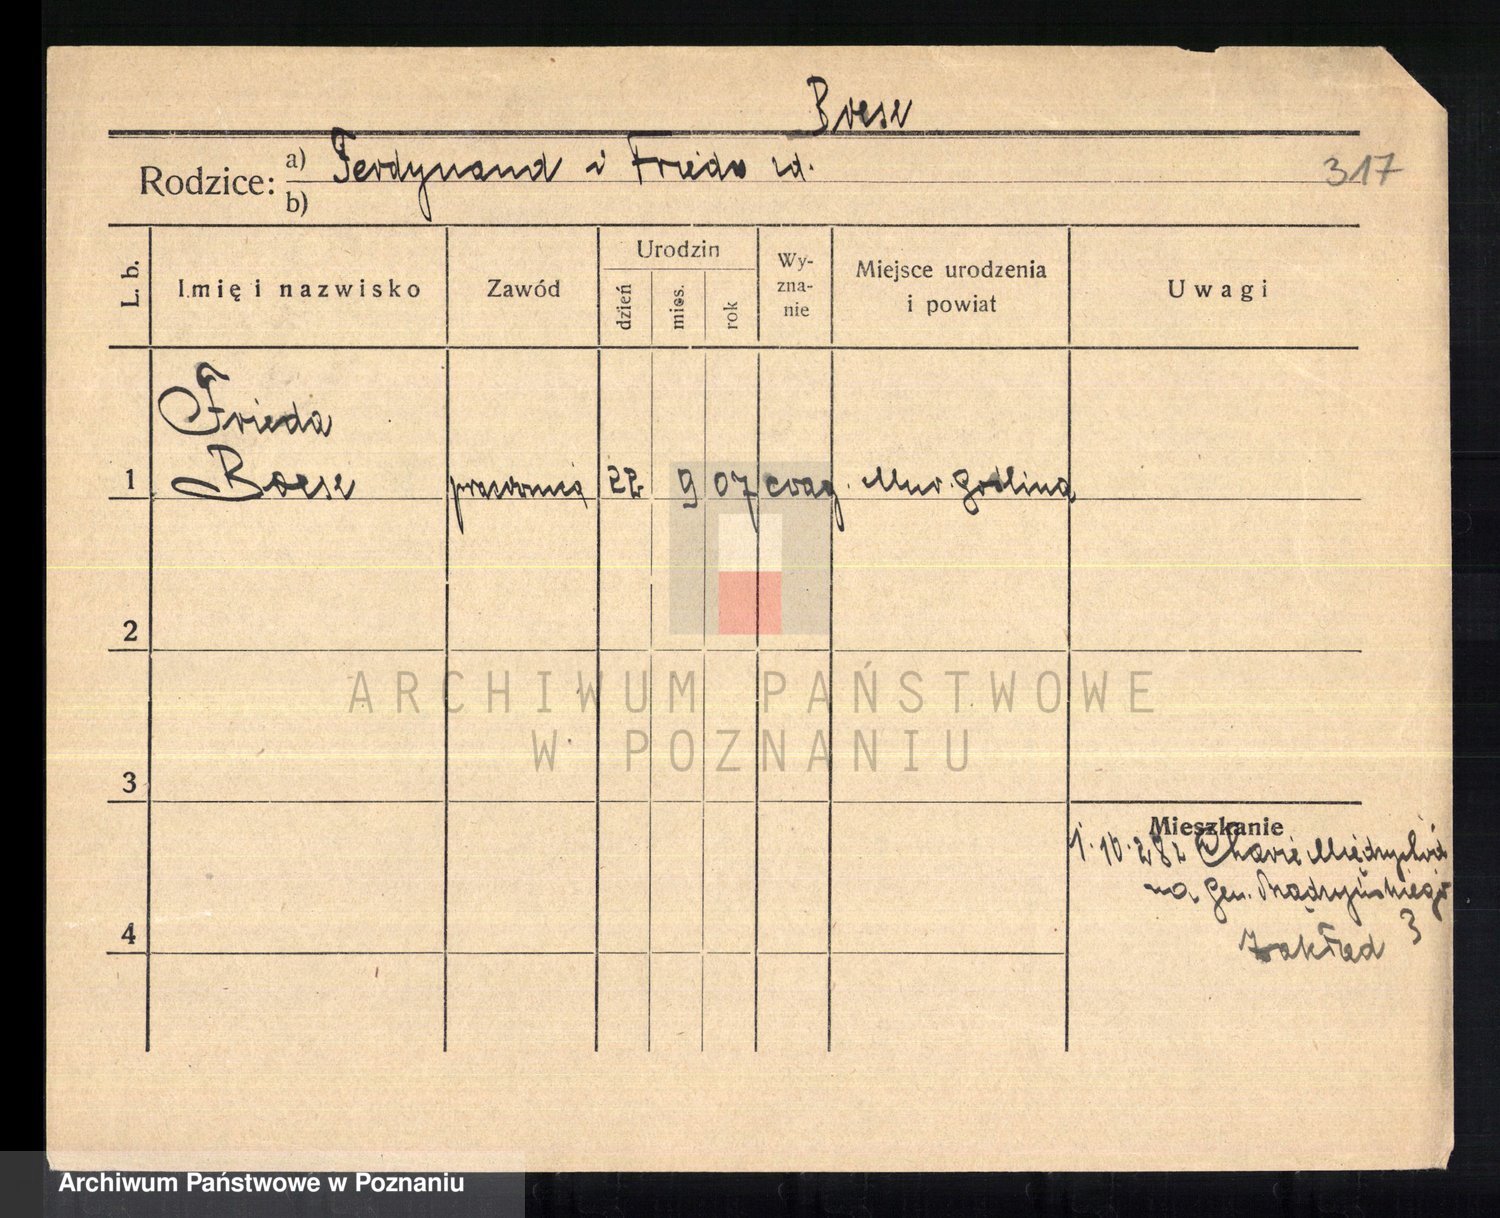 Boese
Rodzice: a) Ferdynand i Frieda zd.
b)
317
L. b.
Imię i nazwisko
Zawód
Urodzin
dzień
mies.
rok
Wy-
zna-
nie
Miejsce urodzenia
i powiat
Uwagi
Frieda
1 Boese pracownica 22 9 07 ewag. Mur. Goślina
2
3
4
Mieszkanie
1.10.28 z Międzychód
na Gen. Prądzyńskiego
3
Zakład
ARCHIWUM PAŃSTWOWE
W POZNANIU
Archiwum Państwowe w Poznaniu